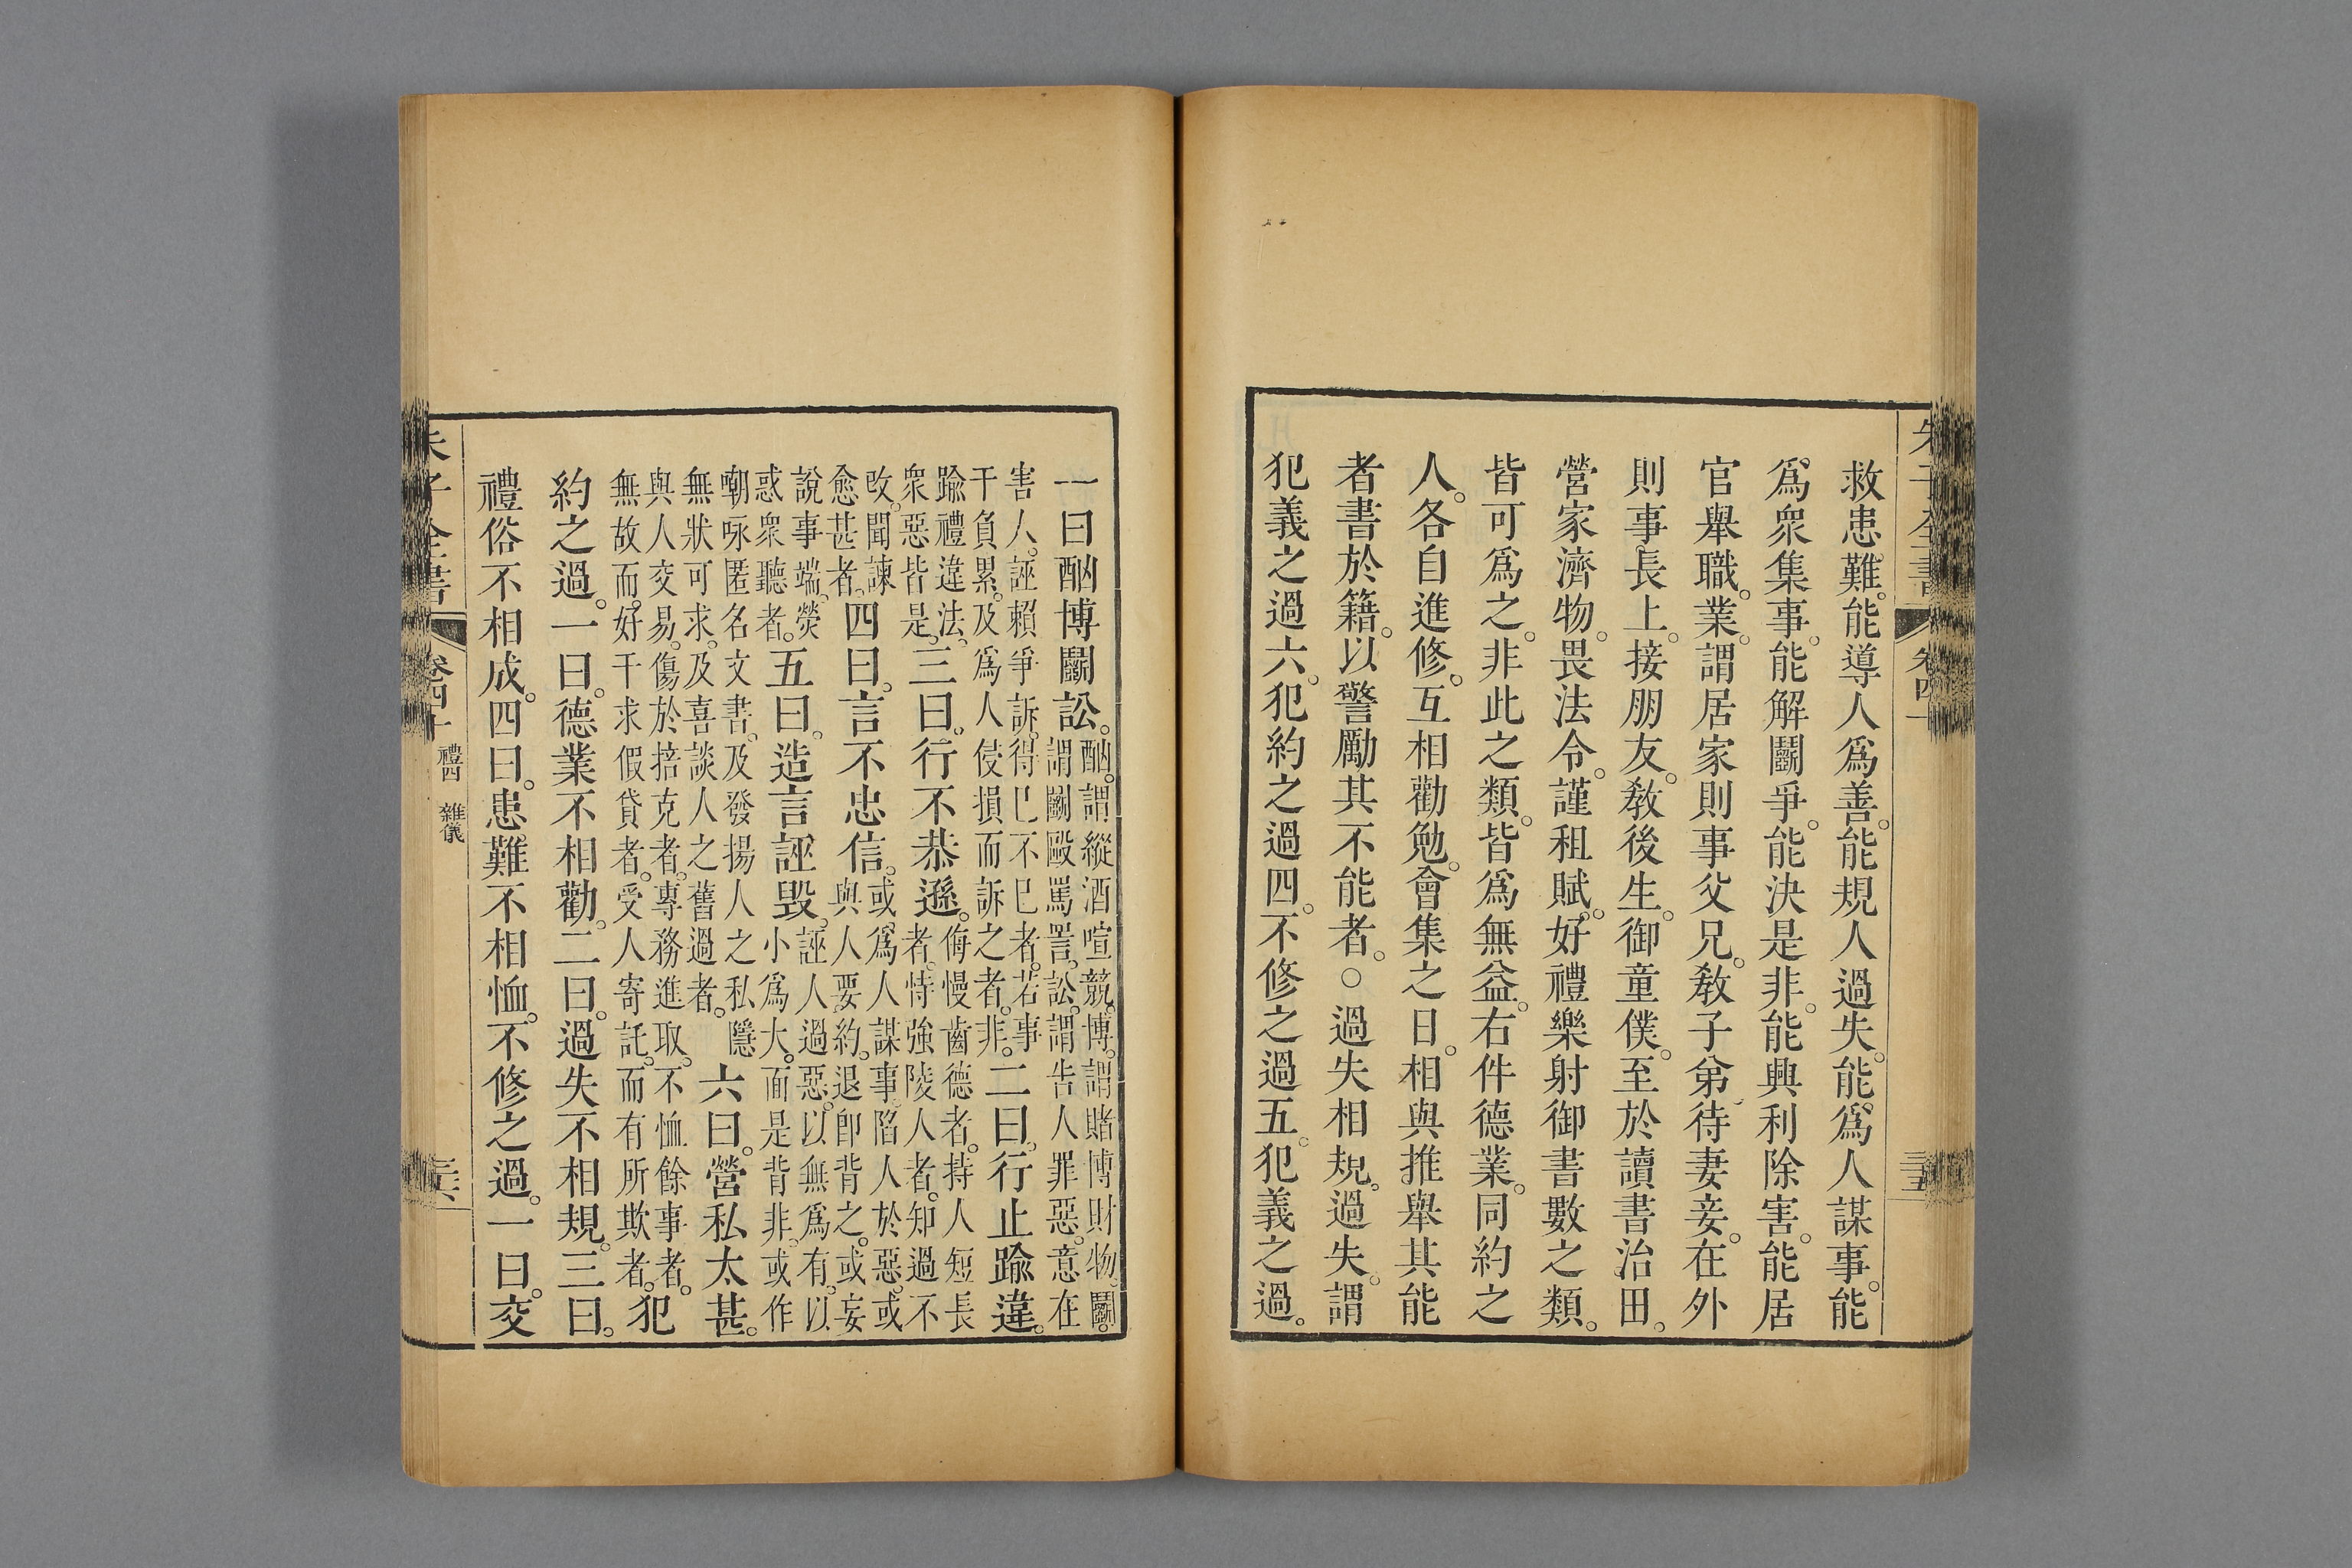 救患難。能導人爲善。能規人過失。能爲人謀事。能
爲衆集事。能解鬭爭。能決是非。能興利除害。能居
官舉職。業。謂居家則事父兄。敎子弟。待妻妾。在外
則事長上。接朋友。敎後生。御童僕。至於讀書治田。
營家濟物。畏法令。謹租賦。好禮樂射御書數之類。
皆可爲之。非此之類。皆爲無益。右件德業。同約之
人。各自進修。互相勸勉。會集之日。相與推舉其能
者書於籍。以警勵其不能者。○過失相規。過失。謂
犯義之過六。犯約之過四。不修之過五。犯義之過。
一曰酗博鬭訟。酗。謂縱酒喧競。博。謂賭博財物。鬭。
謂鬭毆罵詈。訟。謂告人罪惡。意在
害人。誣賴爭訴。得已不已者。若事
干負累。及爲人侵損而訴之者。非。二曰。行止踰違。
踰禮違法。
衆惡皆是。三曰。行不恭遜。侮慢齒德者。持人短長
者。恃強陵人者。知過不
改。聞諫
愈甚者。四曰。言不忠信。或爲人謀事。陷人於惡。或
與人要約。退卽背之。或妄
說事端。熒
惑衆聽者。五曰。造言誣毀。誣人過惡。以無爲有。以
小爲大。面是背非。或作
嘲咏匿名文書。及發揚人之私隱
無狀可求。及喜談人之舊過者。六曰。營私太甚。
與人交易。傷於掊克者。專務進取。不恤餘事者。
無故而好干求假貸者。受人寄託。而有所欺者。犯
約之過。一曰。德業不相勸。二曰。過失不相規。三曰。
禮俗不相成。四曰。患難不相恤。不修之過。一曰。交
朱子全書 卷四十 禮四 雜儀